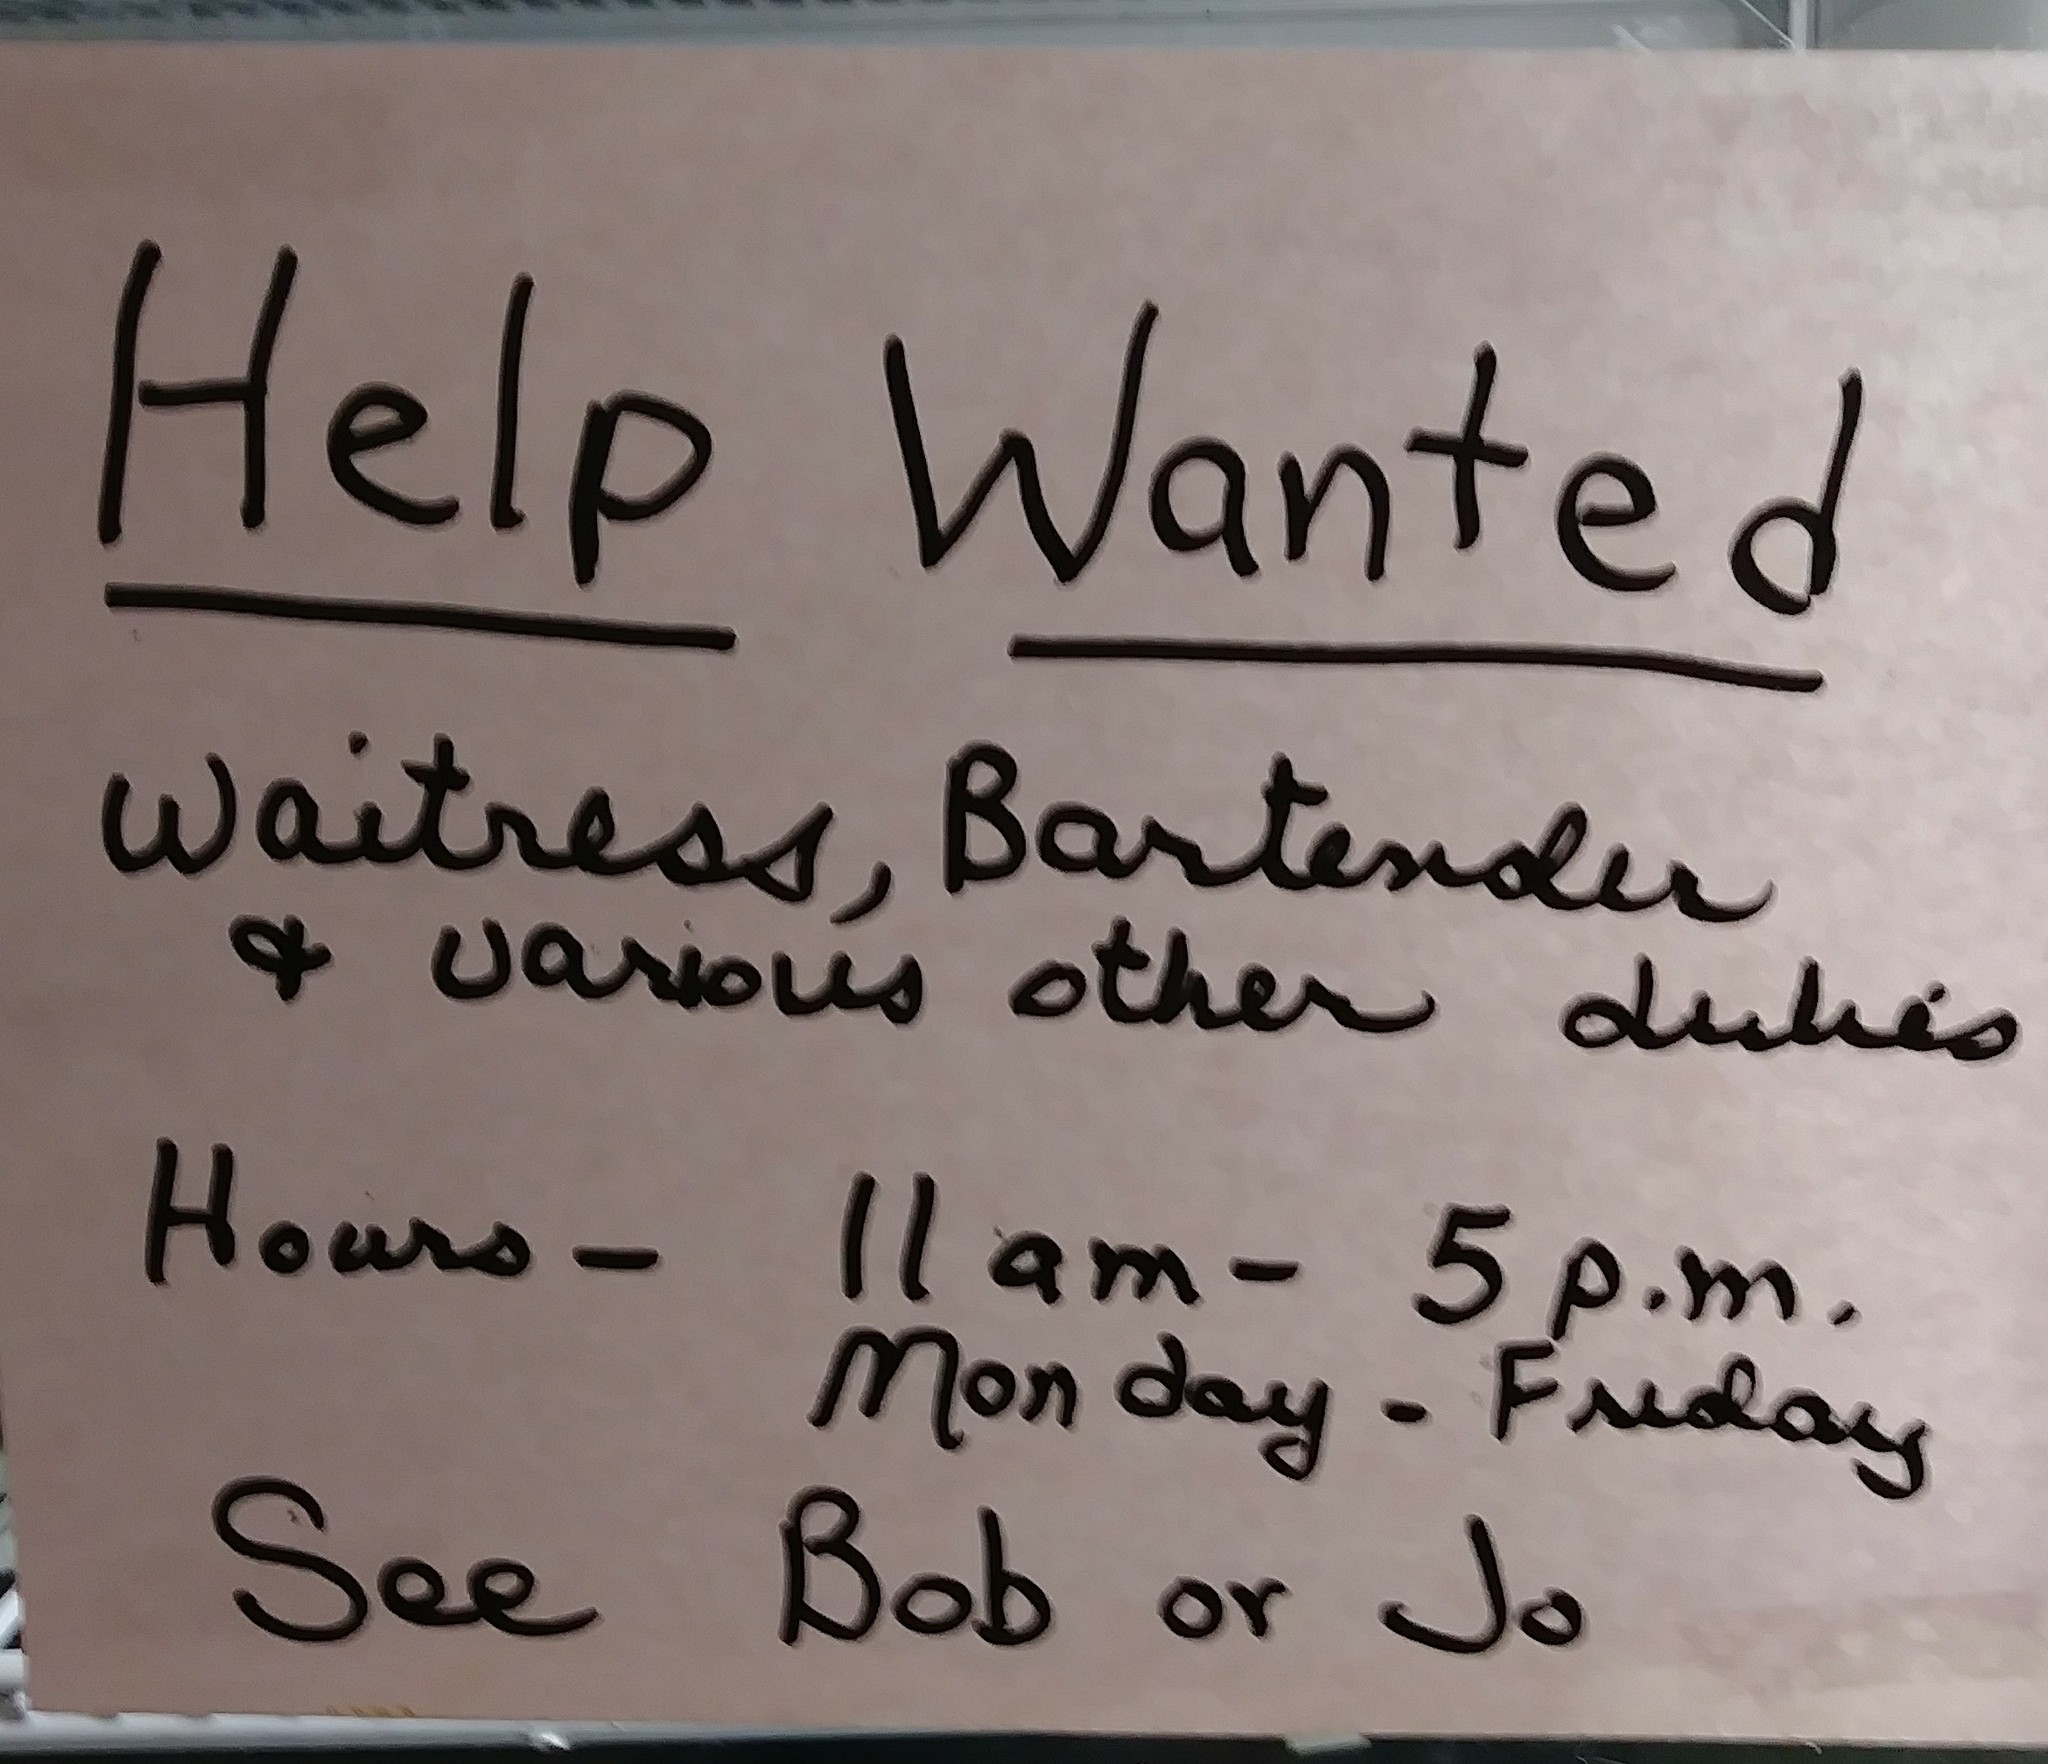 Help Wanted
Waitress, Bartender
& various other duties
Hours - 11 am - 5 p.m.
Monday - Friday
See Bob or Jo